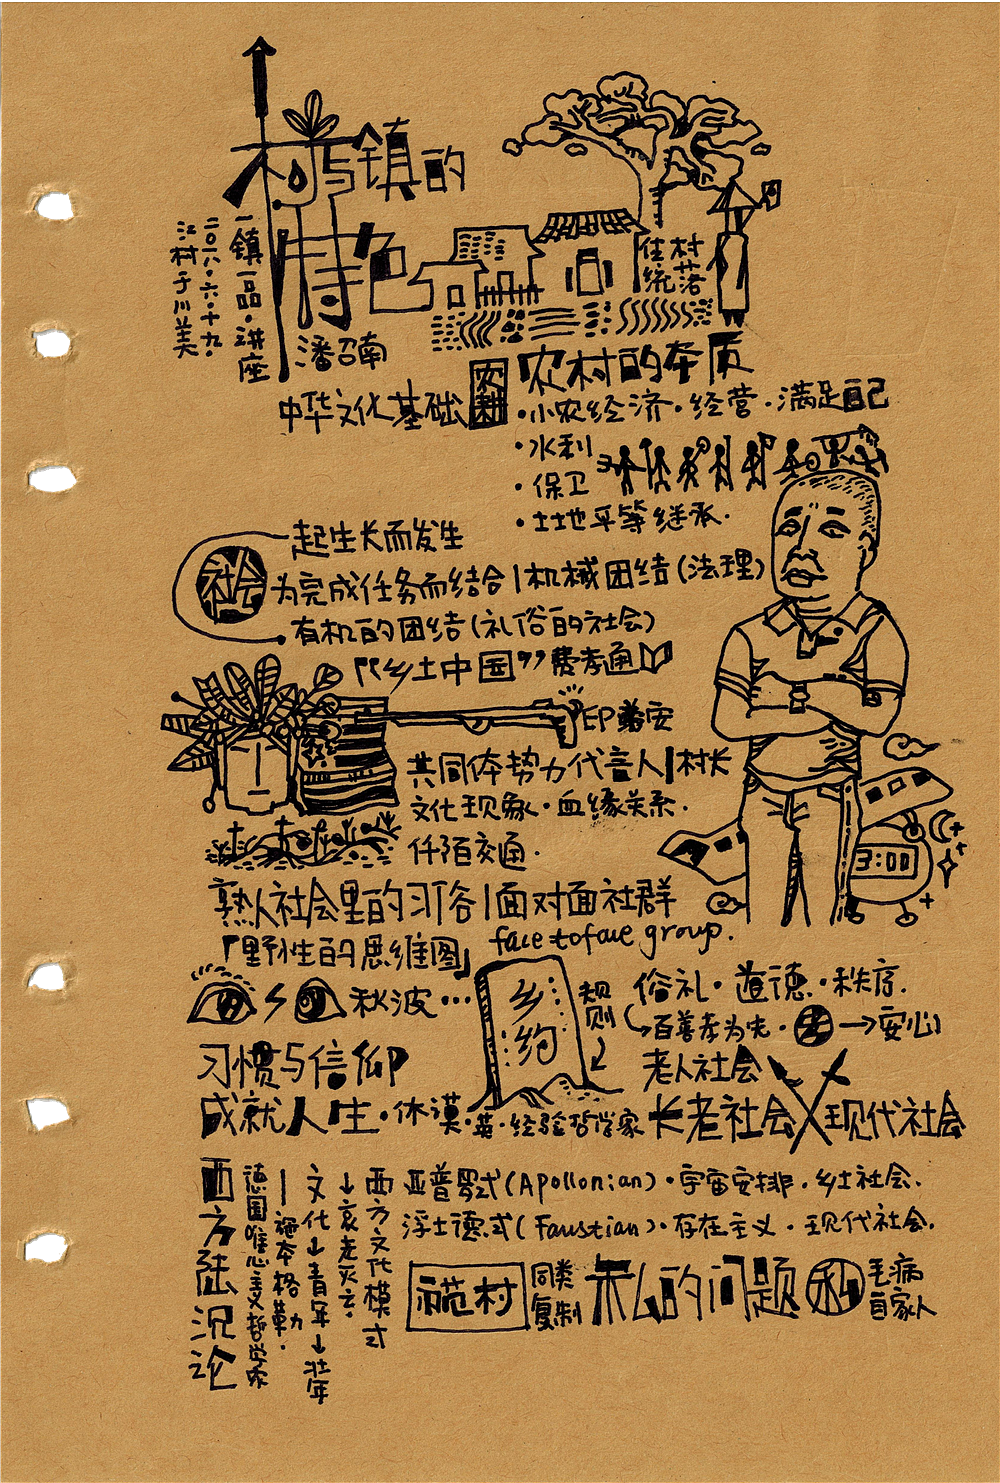 村与镇的
特色
一镇一品·讲座
二〇一八·六·十九·
江村于川美
潘召南
住村
统落
中华文化基础
农耕
农村的本质
·小农经济·经营·满足自己
·水利
·保卫
·土地平等继承·
社会
起生长而发生
为完成任务而结合|机械团结(法理)
有机的团结(礼俗的社会)
“乡土中国”费孝通
共同体势力代言人|村长
文化现象·血缘关系·
仟陌交通·
3:00
熟人社会里的习俗|面对面社群
face to face group.
「野性的思维图」
秋波…
乡约
规则
俗礼·道德·秩序·
百善孝为先·
→安心
老人社会
习惯与信仰
成就人生·休谟·英·经验哲学家
长老社会
现代社会
西方陆沉论
德国唯心主义哲学家
—施本格勒·
文化↓青年↓壮年
↓衰老灭亡·
西方文化模式
亚普罗式(Apollonian)·宇宙安排·乡土社会·
浮士德式(Faustian)·存在主义·现代社会·
示范村
同类复制
私的问题
私
毛病
自家人